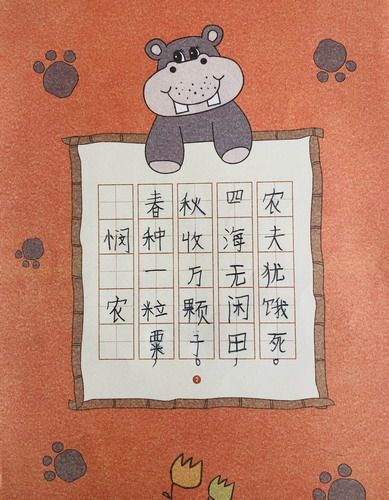 悯农
春种一粒粟，
秋收万颗子。
四海无闲田，
农夫犹饿死。